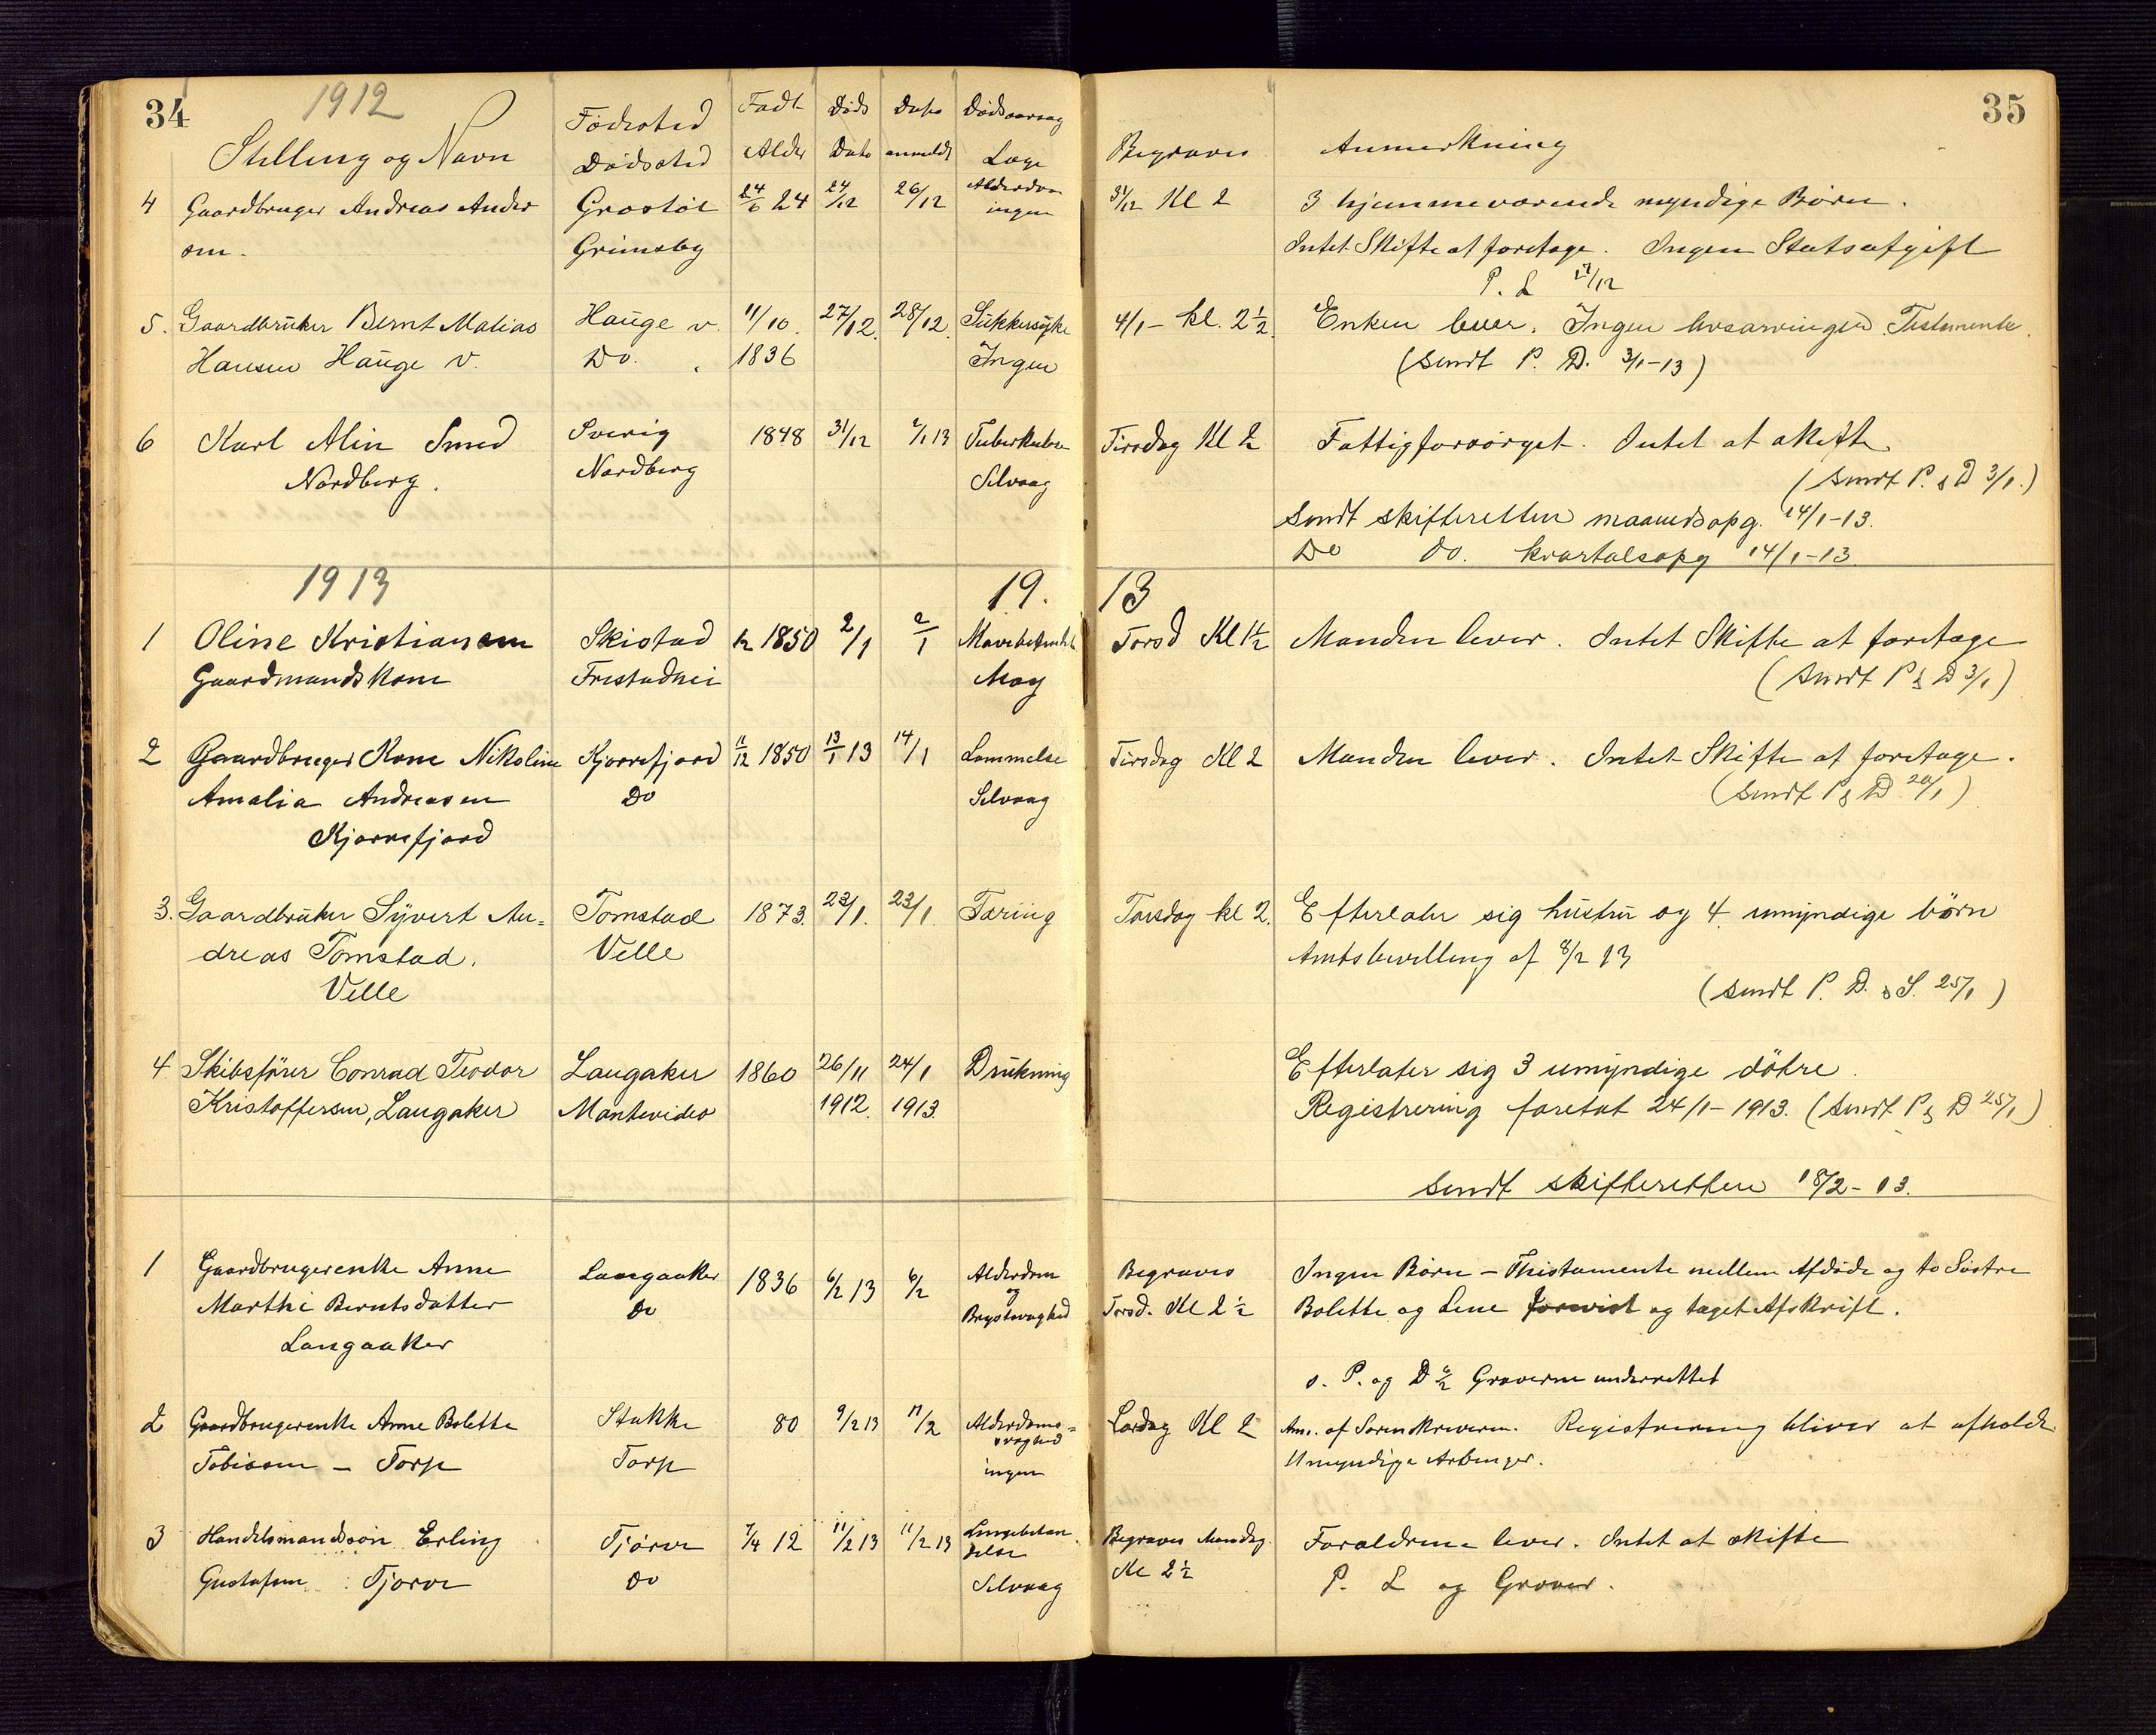 34
1912
Stilling og Navn
Födested
Dödssted
Födt
Alder
Döds
Dato
Dato
anmeldt
Dödsaarsag
Læge
35
Begraves
Anmerkning
4 Gaardbruger Andreas Anders
sen.
Grostöl
Grimsby
24/6 24
24/12
26/12
Alderdom
ingen
31/12 Kl 2
3 hjemmeværende myndige Börn.
Intet Skifte at foretage. Ingen Statsafgift
P. L 27/12
5. Gaardbruker Bernt Matias
Hansen Hauge v.
Hauge v.
Do.
11/10.
1836
27/12.
28/12.
Sukkersyke
Ingen
4/1 - kl. 2 1/2.
Enken lever. Ingen livsarvinger. Testamente.
(Sendt P. D. 3/1-13)
6 Karl Alin Smed
Nordberg.
Sverig
Nordberg
1848
31/12
2/1 13
Tuberkulose
Selvaag
Tirsdag Kl 2
Fattigforsörget. Intet at skifte.
(Sendt P. & D 3/1.)
Sendt skifteretten maanedsopg. 14/1-13.
Do do. kvartalsopg 14/1-13.
1913
19.
13
1 Oline Kristiansen
Gaardmandskone
Skistad
Frestadhei
1/2 1850
2/1
2/1
Mavebetændelse
Moy
Torsd Kl 1 1/2
Manden lever. Intet Skifte at foretage
(Sendt P & D 3/1)
2 Gaardbruger Kone Nikoline
Amalia Andreasen
Kjorrefjord
Kjorrefjord
Do
11/12 1850
13/1 13
14/1
Lammelse
Selvaag
Tirsdag Kl 2
Manden lever. Intet Skifte at foretage.
(Sendt P & D 20/1)
3. Gaardbruker Syvert An=
dreas Tomstad.
Velle
Tomstad
Velle
1873.
22/1.
23/1.
Tæring
Torsdag kl 2.
Efterlater sig hustru og 4 umyndige börn
Amtsbevilling af 8/2 13
(Sendt P. D. & S. 25/1)
4 Skibsförer Conrad Teodor
Kristoffersen, Langaker
Langaker
Montevideo
1860
26/11
1912.
24/1
1913.
Drukning
Efterlater sig 3 umyndige dötre.
Registrering foretat 24/1-1913. (Sendt P & D 25/1)
Sendt skifteretten 18/2-13.
1 Gaardbrugerenke Anne
Marthe Berntsdatter
Langaaker
Langaaker
Do
1836
6/2 13
6/2
Alderdom
og
Brystsvaghed
Begraves
Torsd. Kl 2 1/2
Ingen Börn - Thistamente mellem Afdöde og to Söstre
Bolette og Lene forevist og taget Afskrift.
s. P. og D 6/2 Graveren underrettet
2 Gaardbrugerenke Anne Bolette
Tobissen - Torp
Stakke
Torp
80
9/2 13
11/2
Alderdoms=
svaghed
ingen
Lördag Kl 2
Anv. af Sorenskriveren. Registrering bliver at afholde
Umyndige Arvinger.
3 Handelsmandssön Erling
Gustafsen : Tjörve
Tjörve
Do
7/4 12
11/2 13
11/2 13
Lungebetæn
delse
Selvaag
Begraves Mandag
Kl 2 1/2
Forældrene lever. Intet at skifte
P. L og Graver.